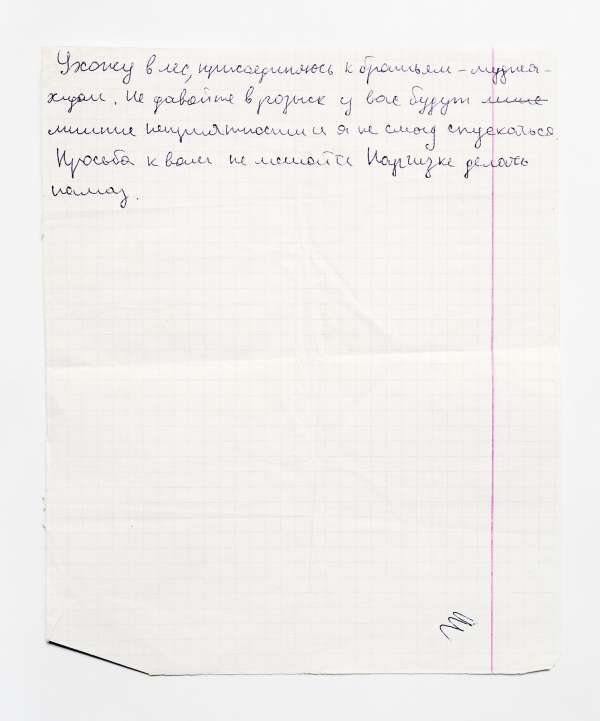 Ухожу в лес, присоединяюсь к братьям-муджа-
хидам. Не давайте в розыск у вас будут лише
лишние неприятности и я не смогу спускаться.
Просьба к вам не мешайте Наргизке делать
намаз.